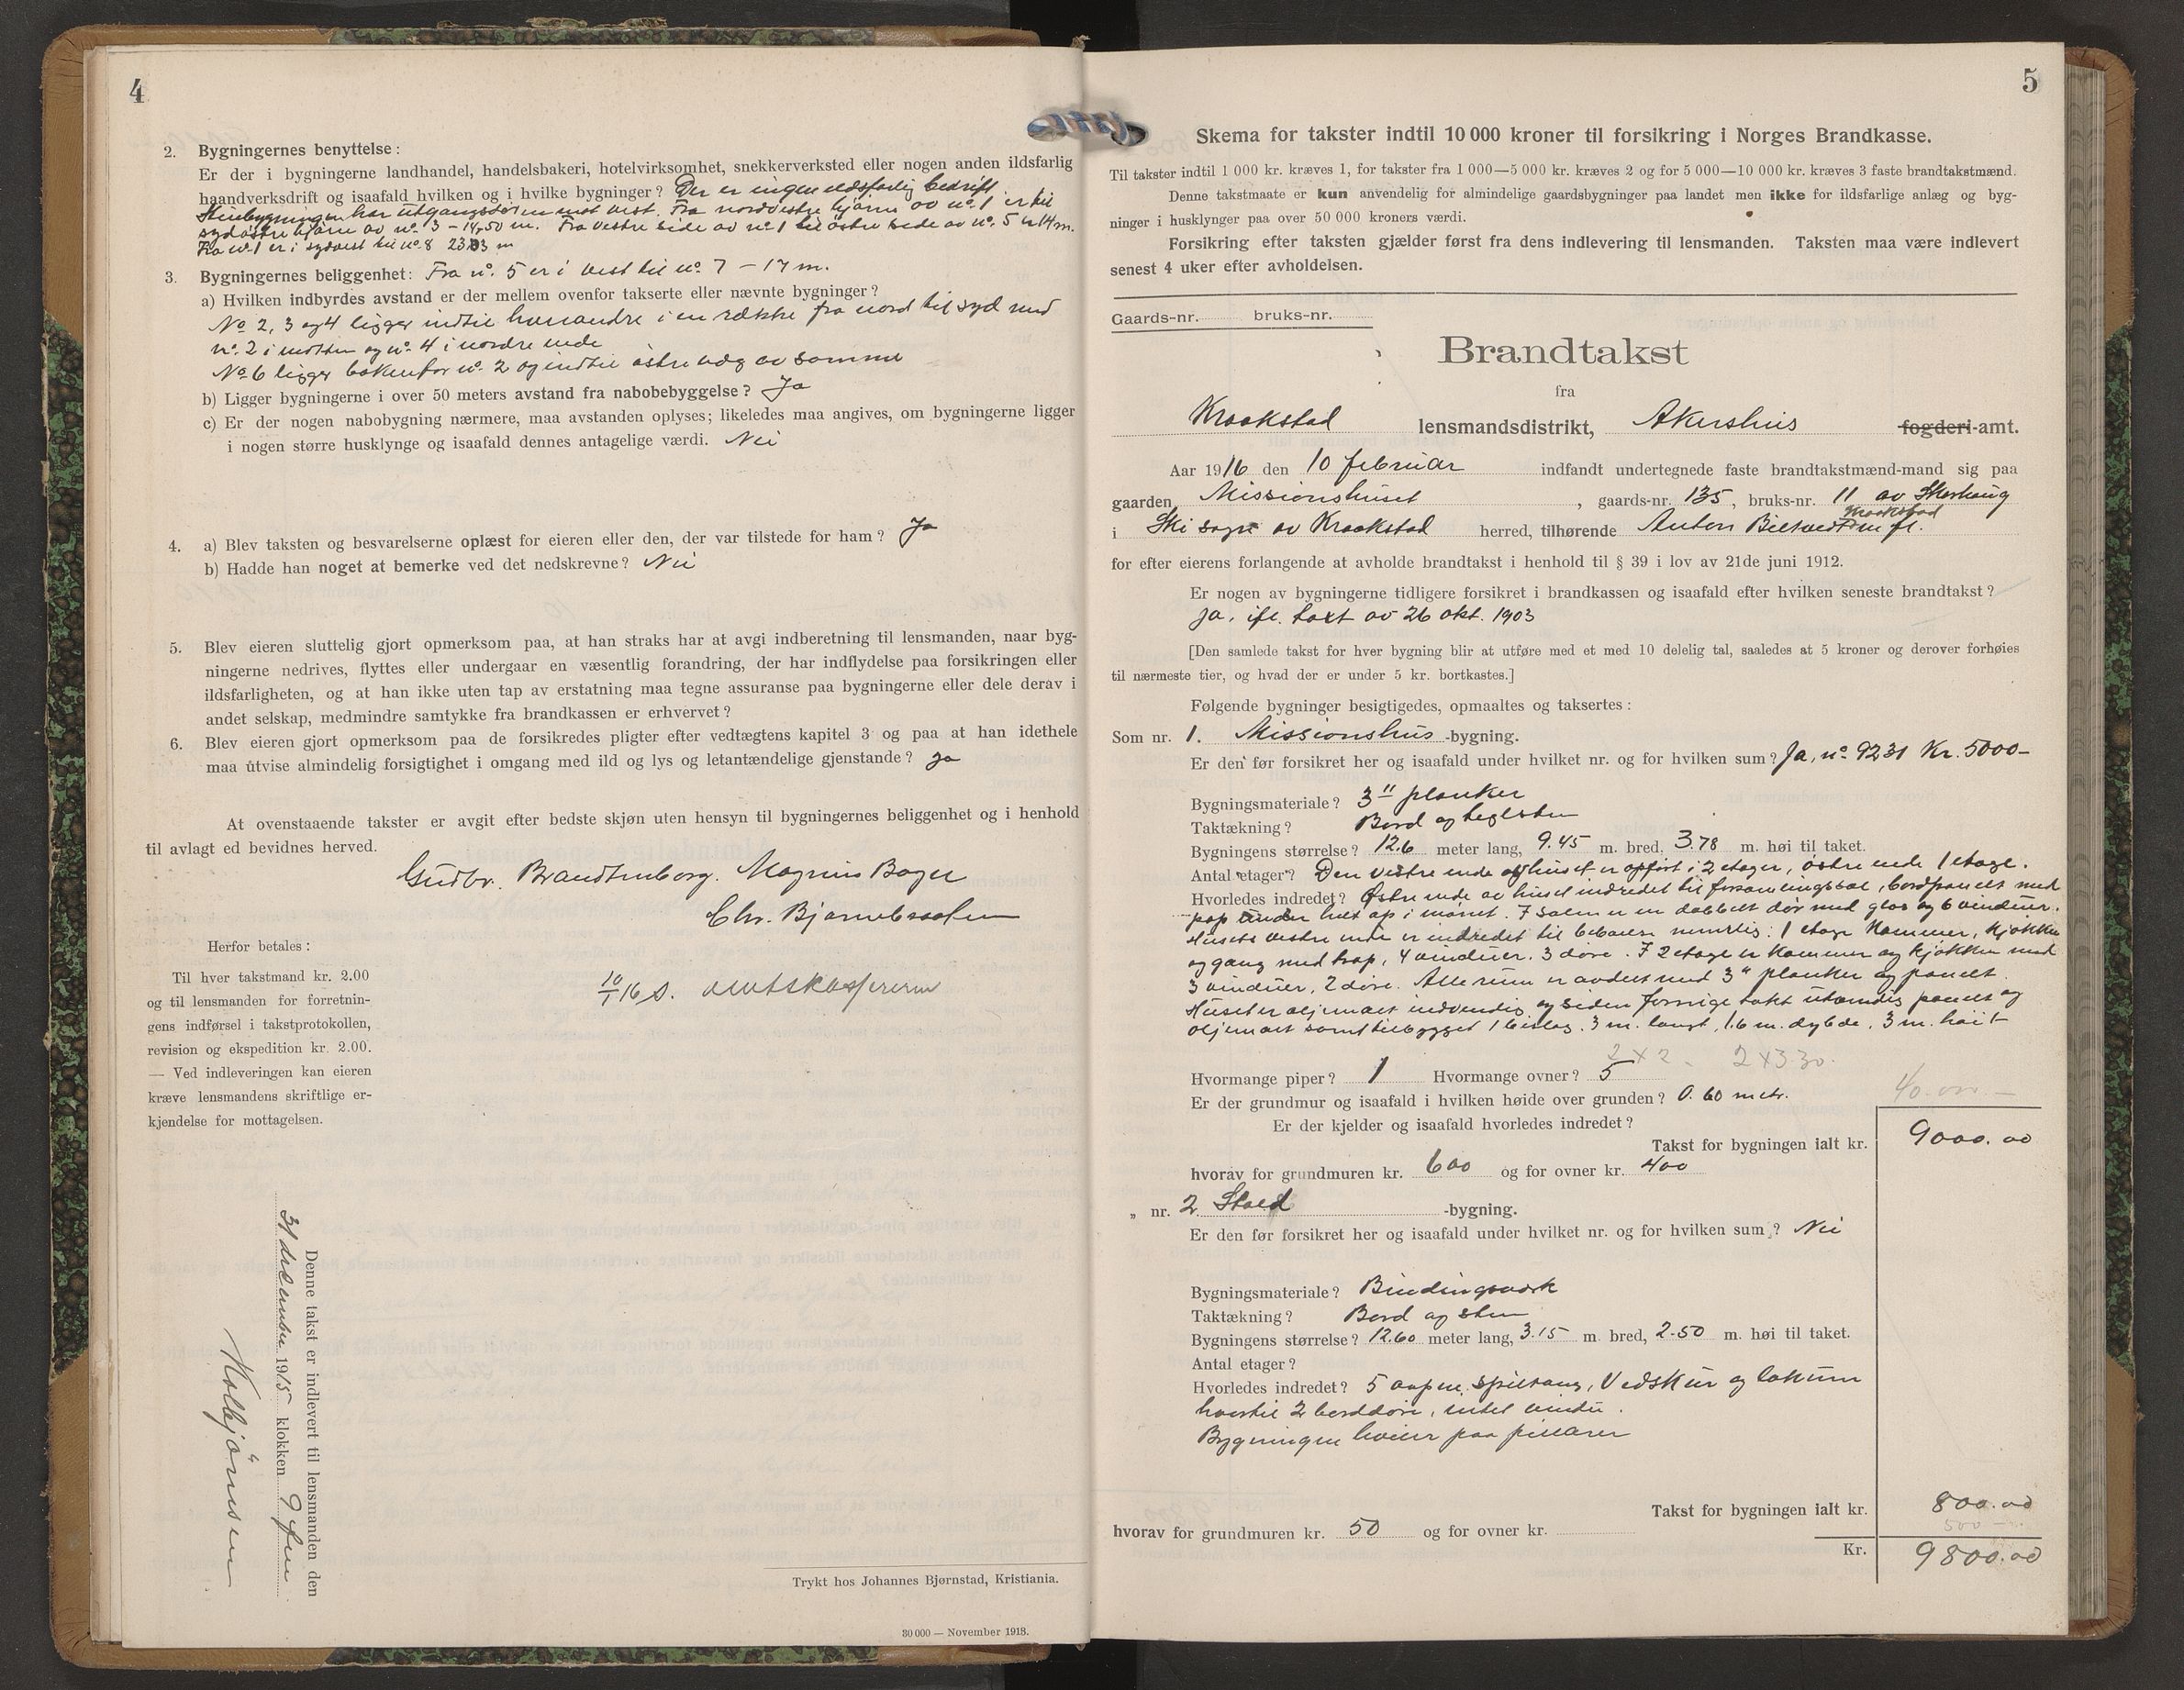 4
2. Bygningernes benyttelse:
Er der i bygningerne landhandel, handelsbakeri, hotelvirksomhet, snekkerverksted eller nogen anden ildsfarlig
haandverksdrift og isaafald hvilken og i hvilke bygninger? Der er ingen ildsfarlig bedrift.
har utgangsdøren mot vest. Fra nordvestre hjørne av no. 1 er til
sydøstre hjørne av no. 3 – 14,50 m. Fra vestre side av no. 1 til østre side av no. 5 er 14 m.
Fra no. 1 er i sydvest til no. 8 23 m
3. Bygningernes beliggenhet: Fra no. 5 er i vest til no. 7 – 17 m.
a) Hvilken indbyrdes avstand er der mellem ovenfor takserte eller nævnte bygninger?
No 2, 3 og 4 ligger indtil hverandre i en række fra nord til syd med
no. 2 i midten og no. 4 i nordre ende
No. 6 ligger bakenfor no. 2 og indtil østre væg av samme
b) Ligger bygningerne i over 50 meters avstand fra nabobebyggelse? Ja
c) Er der nogen nabobygning nærmere, maa avstanden oplyses; likeledes maa angives, om bygningerne ligger
i nogen større husklynge og isaafald dennes antagelige værdi. Nei
4. a) Blev taksten og besvarelserne oplæst for eieren eller den, der var tilstede for ham? Ja
b) Hadde han noget at bemerke ved det nedskrevne? Nei
5. Blev eieren sluttelig gjort opmerksom paa, at han straks har at avgi indberetning til lensmanden, naar byg-
ningerne nedrives, flyttes eller undergaar en væsentlig forandring, der har indflydelse paa forsikringen eller
ildsfarligheten, og at han ikke uten tap av erstatning maa tegne assuranse paa bygningerne eller dele derav i
andet selskap, medmindre samtykke fra brandkassen er erhvervet?
6. Blev eieren gjort opmerksom paa de forsikredes pligter efter vedtægtens kapitel 3 og paa at han idethele
maa utvise almindelig forsigtighet i omgang med ild og lys og letantændelige gjenstande? ja
At ovenstaaende takster er avgit efter bedste skjøn uten hensyn til bygningernes beliggenhet og i henhold
til avlagt ed bevidnes herved.
Gudbr. Brandtenborg. Magnus Bøger
Chr. Bjørnebraaten
10/1 16 S. amtskassereren
Herfor betales:
Til hver takstmand kr. 2.00
og til lensmanden for forretnin-
gens indførsel i takstprotokollen,
revision og ekspedition kr. 2.00.
— Ved indleveringen kan eieren
kræve lensmandens skriftlige er-
kjendelse for mottagelsen.
Denne takst er indlevert til lensmanden den
31 december 1915 klokken 9 fm
Kolbjørnsen
Trykt hos Johannes Bjørnstad, Kristiania.
30 000 — November 1918.
5
Skema for takster indtil 10 000 kroner til forsikring i Norges Brandkasse.
Til takster indtil 1 000 kr. kræves 1, for takster fra 1 000—5 000 kr. kræves 2 og for 5 000—10 000 kr. kræves 3 faste brandtakstmænd.
Denne takstmaate er kun anvendelig for almindelige gaardsbygninger paa landet men ikke for ildsfarlige anlæg og byg-
ninger i husklynger paa over 50 000 kroners værdi.
Forsikring efter taksten gjælder først fra dens indlevering til lensmanden. Taksten maa være indlevert
senest 4 uker efter avholdelsen.
Gaards-nr. bruks-nr.
Brandtakst
fra
Kraakstad lensmandsdistrikt, Akershus fogderi-amt.
Aar 1916 den 10 februar indfandt undertegnede faste brandtakstmænd-mand sig paa
gaarden Missionshuset, gaards-nr. 135, bruks-nr. 11 av Skorhaug
Kraakstad
i Ski sogn av Kraakstad herred, tilhørende Anton m fl.
for efter eierens forlangende at avholde brandtakst i henhold til § 39 i lov av 21de juni 1912.
Er nogen av bygningerne tidligere forsikret i brandkassen og isaafald efter hvilken seneste brandtakst?
Ja, ifl. taxt av 26 okt. 1903
[Den samlede takst for hver bygning blir at utføre med et med 10 delelig tal, saaledes at 5 kroner og derover forhøies
til nærmeste tier, og hvad der er under 5 kr. bortkastes.]
Følgende bygninger besigtigedes, opmaaltes og taksertes:
Som nr. 1. Missionshus-bygning.
Er den før forsikret her og isaafald under hvilket nr. og for hvilken sum? Ja, no 9231 Kr. 5000–
Bygningsmateriale? 3" planker
Taktækning? Bord og teglsten
Bygningens størrelse? 12.6 meter lang, 9.45 m. bred, 3.78 m. høi til taket.
Antal etager? Den vestre ende av huset er opført i 2 etager, østre ende 1 etage.
Hvorledes indredet? Østre ende av huset indredet til forsamlingssal, bordpanelt med
pap under helt op i mønet. I salen er en dobbelt dør med glas og 6 vinduer.
Husets vestre ende er indredet til beboelse nemlig: 1 etage Kammer, kjøkken
og gang med trap, 4 vinduer. 3 døre. I 2 etage er Kammer og kjøkken med
3 vinduer, 2 døre. Alle rum er avdelt med 3" planker og panelt.
Huset er oljemalt indvendig og siden forrige takt utvendig panelt og
oljemalt samt tilbygget 1 bislag. 3 m. langt, 1.6 m. dybde, 3 m. høit
2 x 2 – 2 x 3.30.
Hvormange piper? 1 Hvormange ovner? 5
Er der grundmur og isaafald i hvilken høide over grunden? 0.60 metr.
Er der kjelder og isaafald hvorledes indredet?
Takst for bygningen ialt kr. 9000.00
hvorav for grundmuren kr. 600 og for ovner kr. 400
„ nr. 2 Stald -bygning.
Er den før forsikret her og isaafald under hvilket nr. og for hvilken sum? Nei
Bygningsmateriale? Bindingsværk
Taktækning? Bord og sten
Bygningens størrelse? 12.60 meter lang, 3.15 m. bred, 2.50 m. høi til taket.
Antal etager?
Hvorledes indredet? 5 aapne spiltaug, Vedskur og lokum
hvortil 2 borddøre, intet vindu.
Bygningen hviler paa pillarer
Takst for bygningen ialt kr. 800.00
500 –
hvorav for grundmuren kr. 50 og for ovner kr.
Kr. 9800.00